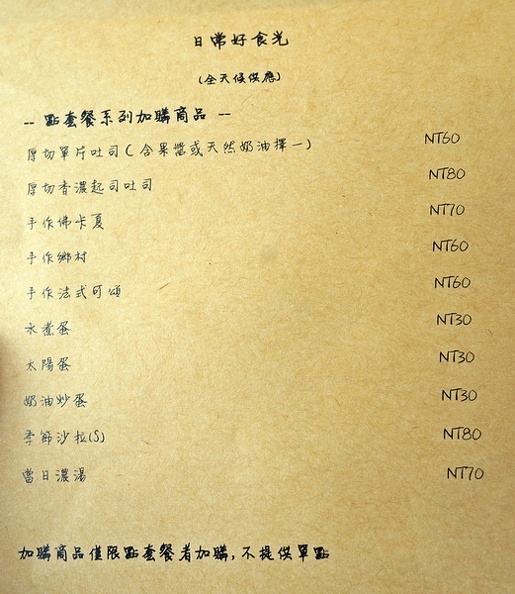 日常好食光
(全天候供應)
-- 點套餐系列加購商品 --
厚切單片吐司(含果醬或天然奶油擇一) NT60
厚切香濃起司吐司 NT80
手作佛卡夏 NT70
手作鄉村 NT60
手作法式可頌 NT60
水煮蛋 NT30
太陽蛋 NT30
奶油炒蛋 NT30
季節沙拉(S) NT80
當日濃湯 NT70
加購商品僅限點套餐者加購,不提供單點